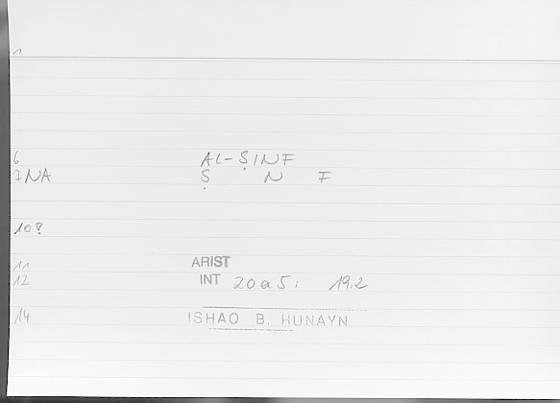 1
6 AL-ṢINF
7 NA Ṣ N F
10?
11 ARIST
12 INT 20a5; 19.2
14 ISHAQ B. HUNAYN